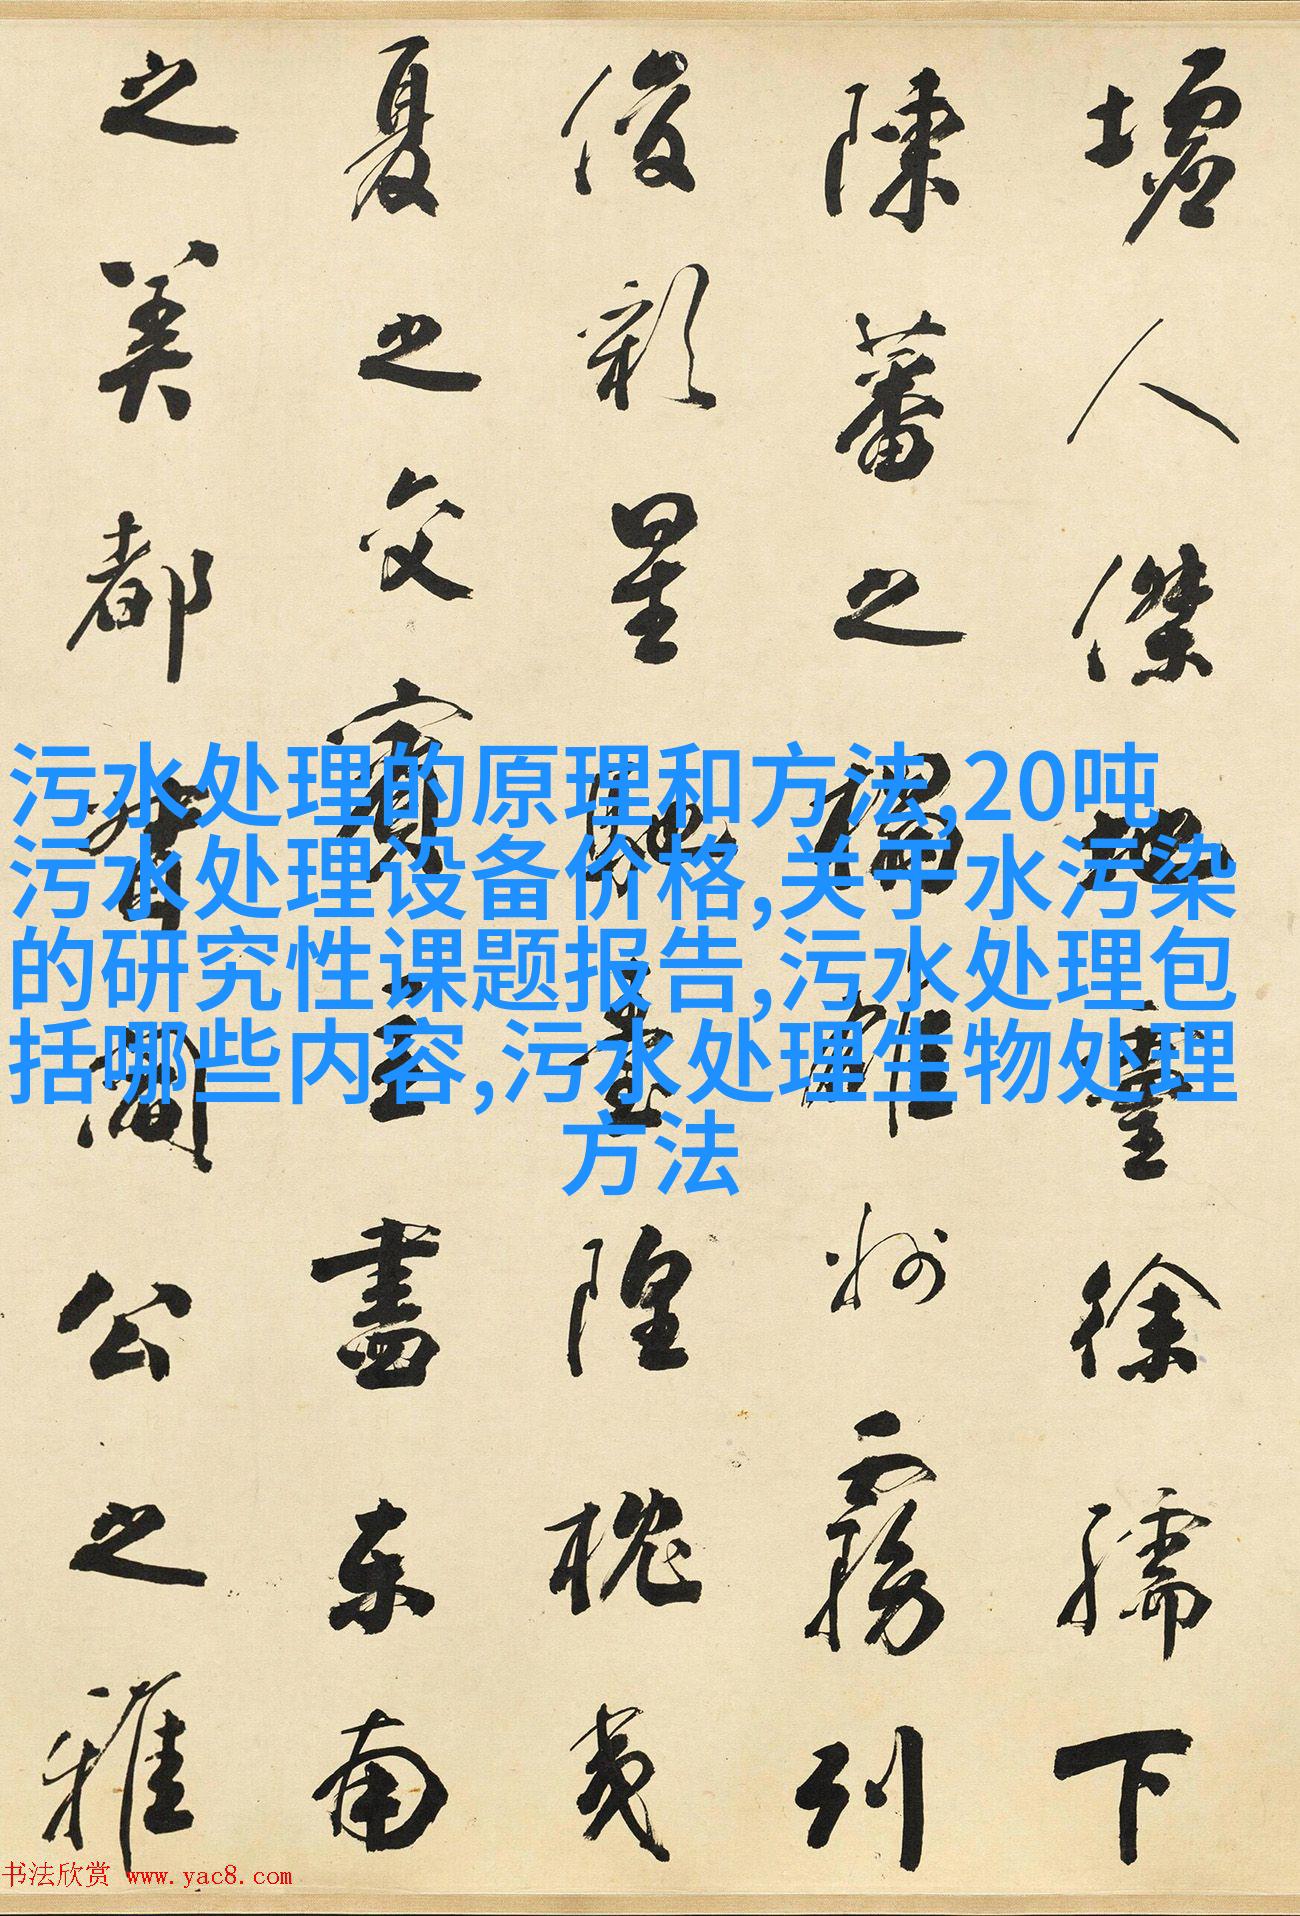 墟人傑地靈徐孺下
陳蕃之榻雄州霧列
俊彩星馳臺隍枕夷
夏之交賓主盡東南
之美都督閻公之雅
污水处理的原理和方法,20吨
污水处理设备价格,关于水污染
的研究性课题报告,污水处理包
括哪些内容,污水处理生物处理
方法
书法欣赏 www.yac8.com